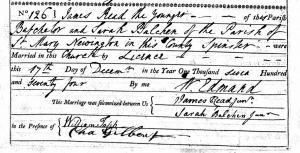 No 126 } James Read the Younger of the Parish
Batchelor and Sarah Balchen of the Parish of
St Mary Newington in this County Spinster were
Married in this Church by Licence
this 17th Day of Decemr in the Year One Thousand seven Hundred
and seventy four By me W Edmand
This Marriage was solemnized between Us { James Read Junr
Sarah Balchin Junr
in the Presence of { William
Cha Gilbour